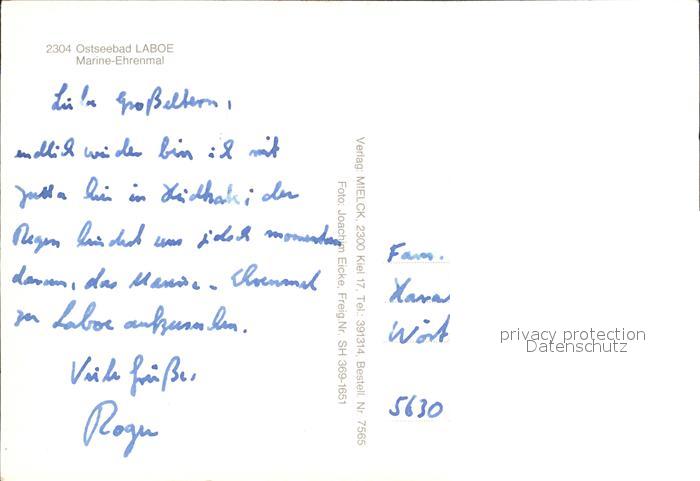 2304 Ostseebad LABOE
Marine-Ehrenmal
Liebe Großeltern,
endlich wieder bin ich mit
Jutta hier in ; der
Regen hindert uns jedoch momentan
daran, das Marine-Ehrenmal
zu Laboe aufzusuchen.
Viele Grüße,
Roger
Verlag: MIELCK, 2300 Kiel 17, Tel.: 391314, Bestell. Nr. 7565
Foto: Joachim Eicke, Freig.Nr. SH 369-1651
Fam.
Wört
5630
privacy protection
Datenschutz